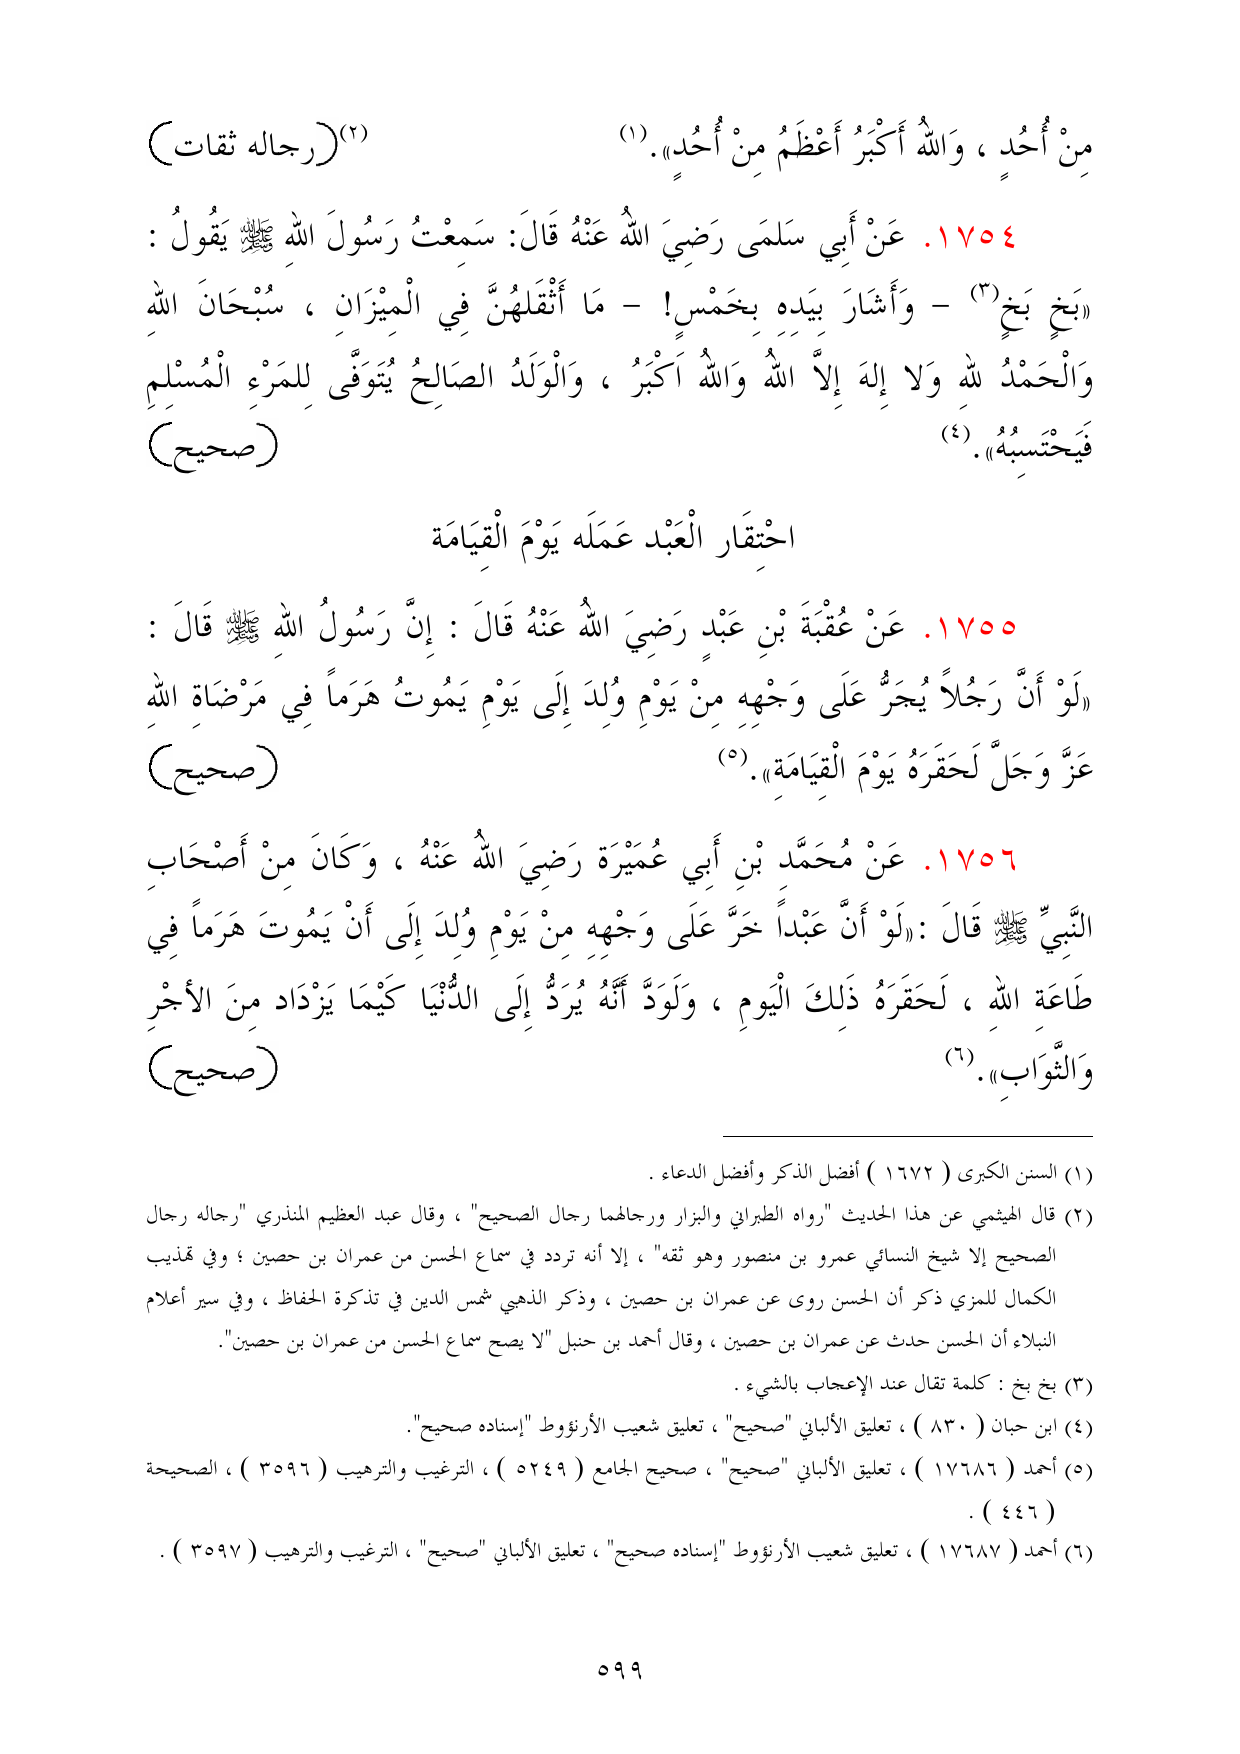 مِنْ أُحُدٍ ، وَاللهُ أَكْبَرُ أَعْظَمُ مِنْ أُحُدٍ».(١) (رجاله ثقات)(٢)
١٧٥٤. عَنْ أَبِي سَلمَى رَضِيَ اللهُ عَنْهُ قَالَ: سَمِعْتُ رَسُولَ اللهِ ﷺ يَقُولُ :
«بَخٍ بَخٍ(٣) – وَأَشَارَ بِيَدِهِ بِخَمْسٍ! – مَا أَثْقَلهُنَّ فِي الْمِيْزَانِ ، سُبْحَانَ اللهِ
وَالْحَمْدُ للهِ وَلا إِلهَ إِلاَّ اللهُ وَاللهُ اَكْبَرُ ، وَالْوَلَدُ الصَالِحُ يُتَوَفَّى لِلمَرْءِ الْمُسْلِمِ
فَيَحْتَسِبُهُ».(٤) (صحيح)
احْتِقَار الْعَبْد عَمَلَه يَوْمَ الْقِيَامَة
١٧٥٥. عَنْ عُقْبَةَ بْنِ عَبْدٍ رَضِيَ اللهُ عَنْهُ قَالَ : إِنَّ رَسُولُ اللهِ ﷺ قَالَ :
«لَوْ أَنَّ رَجُلاً يُجَرُّ عَلَى وَجْهِهِ مِنْ يَوْمِ وُلِدَ إِلَى يَوْمِ يَمُوتُ هَرَماً فِي مَرْضَاةِ اللهِ
عَزَّ وَجَلَّ لَحَقَرَهُ يَوْمَ الْقِيَامَةِ».(٥) (صحيح)
١٧٥٦. عَنْ مُحَمَّدِ بْنِ أَبِي عُمَيْرَة رَضِيَ اللهُ عَنْهُ ، وَكَانَ مِنْ أَصْحَابِ
النَّبِيِّ ﷺ قَالَ :«لَوْ أَنَّ عَبْداً خَرَّ عَلَى وَجْهِهِ مِنْ يَوْمِ وُلِدَ إِلَى أَنْ يَمُوتَ هَرَماً فِي
طَاعَةِ اللهِ ، لَحَقَرَهُ ذَلِكَ الْيَومِ ، وَلَوَدَّ أَنَّهُ يُرَدُّ إِلَى الدُّنْيَا كَيْمَا يَزْدَاد مِنَ الأجْرِ
وَالثَّوَابِ».(٦) (صحيح)
(١) السنن الكبرى ( ١٦٧٢ ) أفضل الذكر وأفضل الدعاء .
(٢) قال الهيثمي عن هذا الحديث "رواه الطبراني والبزار ورجالهما رجال الصحيح" ، وقال عبد العظيم المنذري "رجاله رجال
الصحيح إلا شيخ النسائي عمرو بن منصور وهو ثقه" ، إلا أنه تردد في سماع الحسن من عمران بن حصين ؛ وفي تهذيب
الكمال للمزي ذكر أن الحسن روى عن عمران بن حصين ، وذكر الذهبي شمس الدين في تذكرة الحفاظ ، وفي سير أعلام
النبلاء أن الحسن حدث عن عمران بن حصين ، وقال أحمد بن حنبل "لا يصح سماع الحسن من عمران بن حصين".
(٣) بخ بخ : كلمة تقال عند الإعجاب بالشيء .
(٤) ابن حبان ( ٨٣٠ ) ، تعليق الألباني "صحيح" ، تعليق شعيب الأرنؤوط "إسناده صحيح".
(٥) أحمد ( ١٧٦٨٦ ) ، تعليق الألباني "صحيح" ، صحيح الجامع ( ٥٢٤٩ ) ، الترغيب والترهيب ( ٣٥٩٦ ) ، الصحيحة
( ٤٤٦ ) .
(٦) أحمد ( ١٧٦٨٧ ) ، تعليق شعيب الأرنؤوط "إسناده صحيح" ، تعليق الألباني "صحيح" ، الترغيب والترهيب ( ٣٥٩٧ ) .
٥٩٩